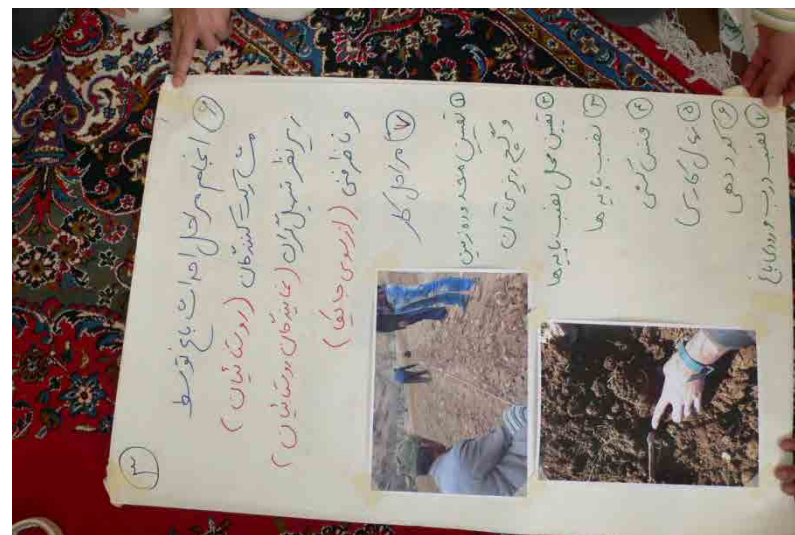 ۳
۶ انجام مراحل احداث باغ توسط
مشارکت کنندگان (روستائیان)
زیر نظر تسهیل گران (نمایندگان روستائیان)
و ناظر فنی (از سوی جایکا)
۷ مراحل کار
۱ تعیین محدوده زمین
و گچ ریزی آن
۲ تعیین محل نصب پایه ها
۳ نصب پایه ها
۴ فنس کشی
۵ نهال کاری
۶ کود دهی
۷ نصب درب ورودی باغ